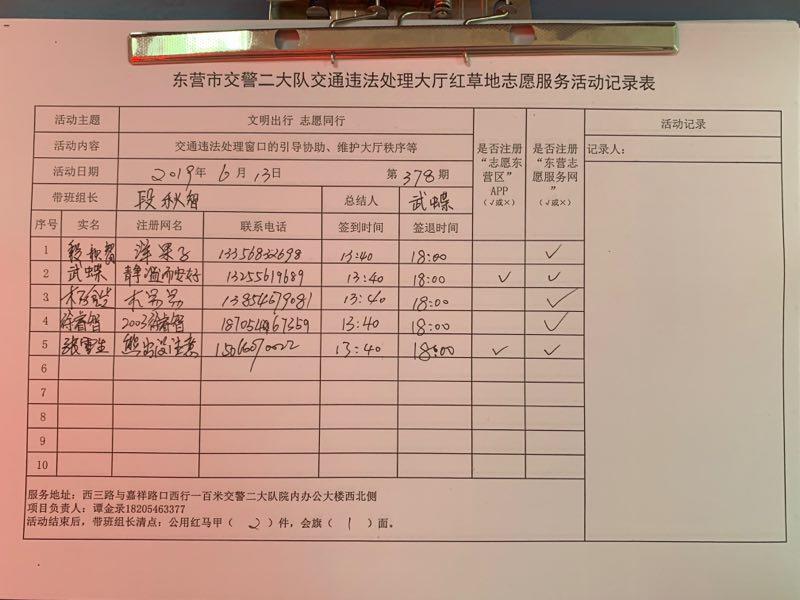 东营市交警二大队交通违法处理大厅红草地志愿服务活动记录表
活动主题 文明出行 志愿同行 活动记录
活动内容 交通违法处理窗口的引导协助、维护大厅秩序等 记录人：
是否注册“志愿东营区”APP（√或×）
是否注册“东营志愿服务网”（√或×）
活动日期 2019年 6月 13日 第 378 期
带班组长 段秋智 总结人 武蝶
序号 实名 注册网名 联系电话 签到时间 签退时间
1 洋果子 13356832698 13:40 18:00 √
2 武蝶 静谧而安好 13255619689 13:40 18:00 √ √
3 13854679081 13:40 18:00 √
4 徐睿智 2003徐睿智 13:40 18:00 √
5 张雪生 熊出没注意 13:40 18:00 √ √
6
7
8
9
10
服务地址：西三路与嘉祥路口西行一百米交警二大队院内办公大楼西北侧
项目负责人：谭金录18205463377
活动结束后，带班组长清点：公用红马甲（ 2 ）件，会旗（ 1 ）面。